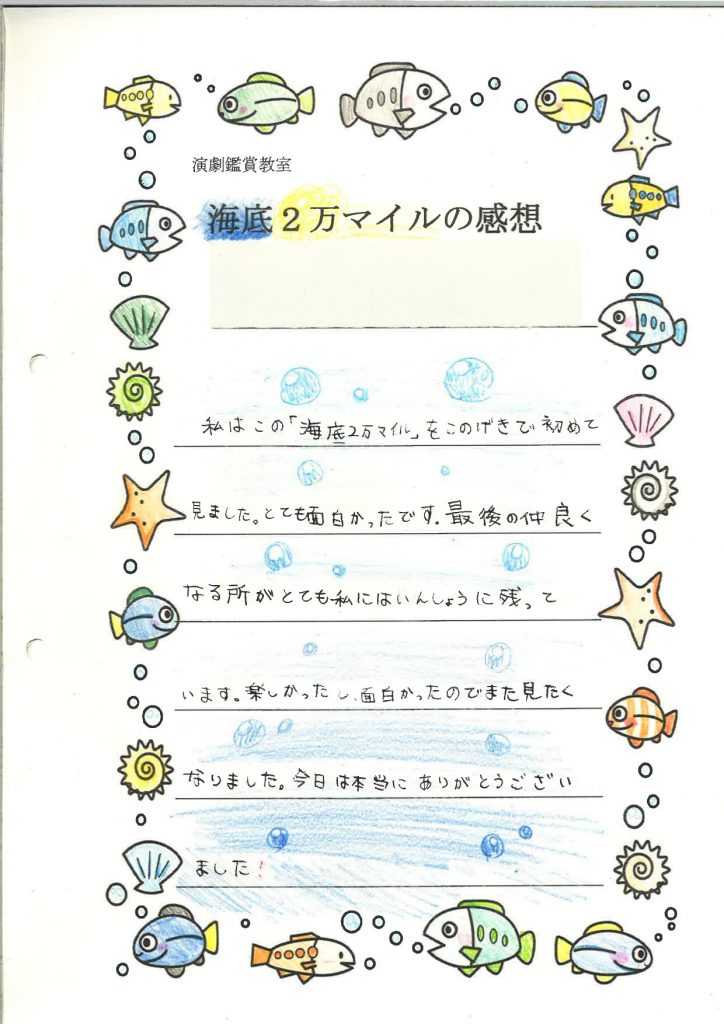 演劇鑑賞教室
海底２万マイルの感想
私はこの「海底2万マイル」をこのげきで初めて
見ました。とても面白かったです。最後の仲良く
なる所がとても私にはいんしょうに残って
います。楽しかったし、面白かったのでまた見たく
なりました。今日は本当にありがとうござい
ました!